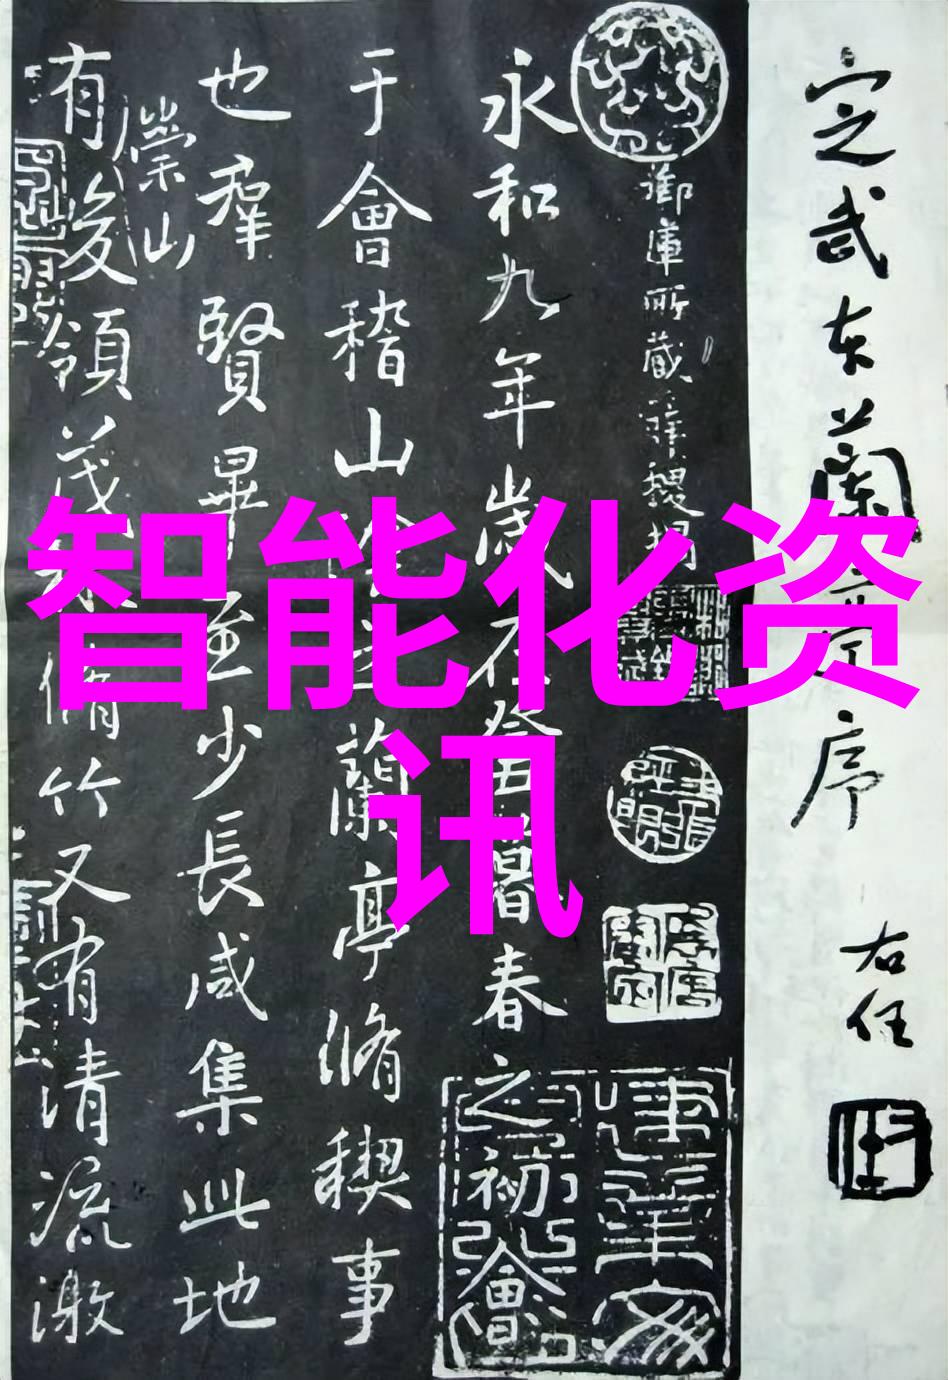 智能化资
讯
定武本蘭亭序
右任
御庫所藏
永和九年歲在癸丑暮春之初會
于會稽山陰之蘭亭脩稧事
也羣賢畢至少長咸集此地
有崇山
峻領茂林脩竹又有清流激